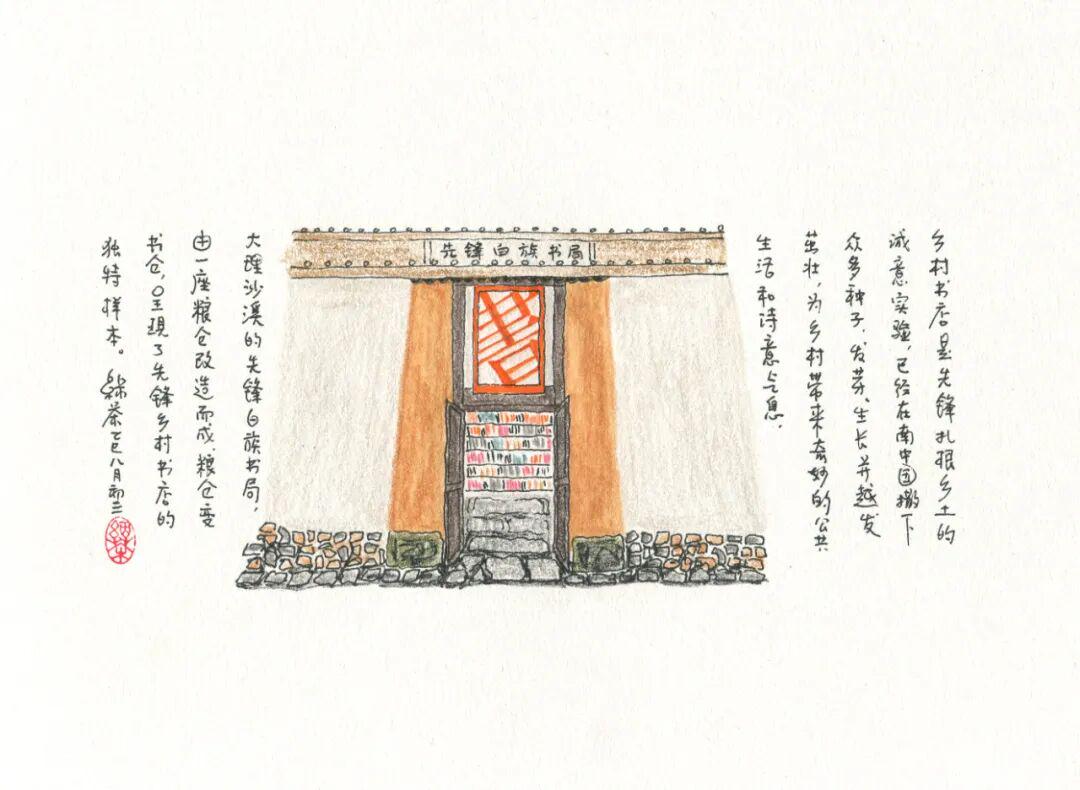 乡村书店是先锋扎根乡土的
诚意实验，已经在南中国撒下
众多种子、发芽、生长并越发
茁壮，为乡村带来奇妙的公共
生活和诗意气息。
先锋白族书局
大理沙溪的先锋白族书局，
由一座粮仓改造而成，粮仓变
书仓，呈现了先锋乡村书店的
独特样本。绿茶乙巳八月初三
绿茶